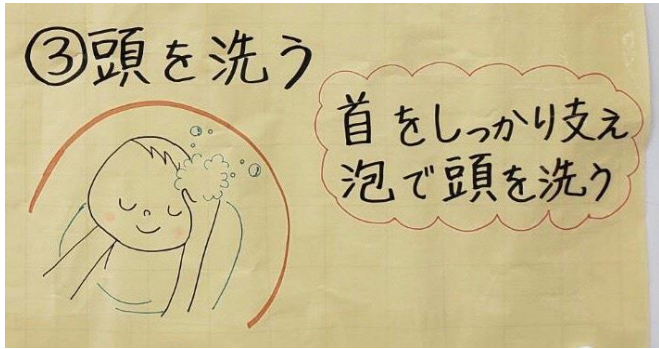 ③頭を洗う
首をしっかり支え
泡で頭を洗う